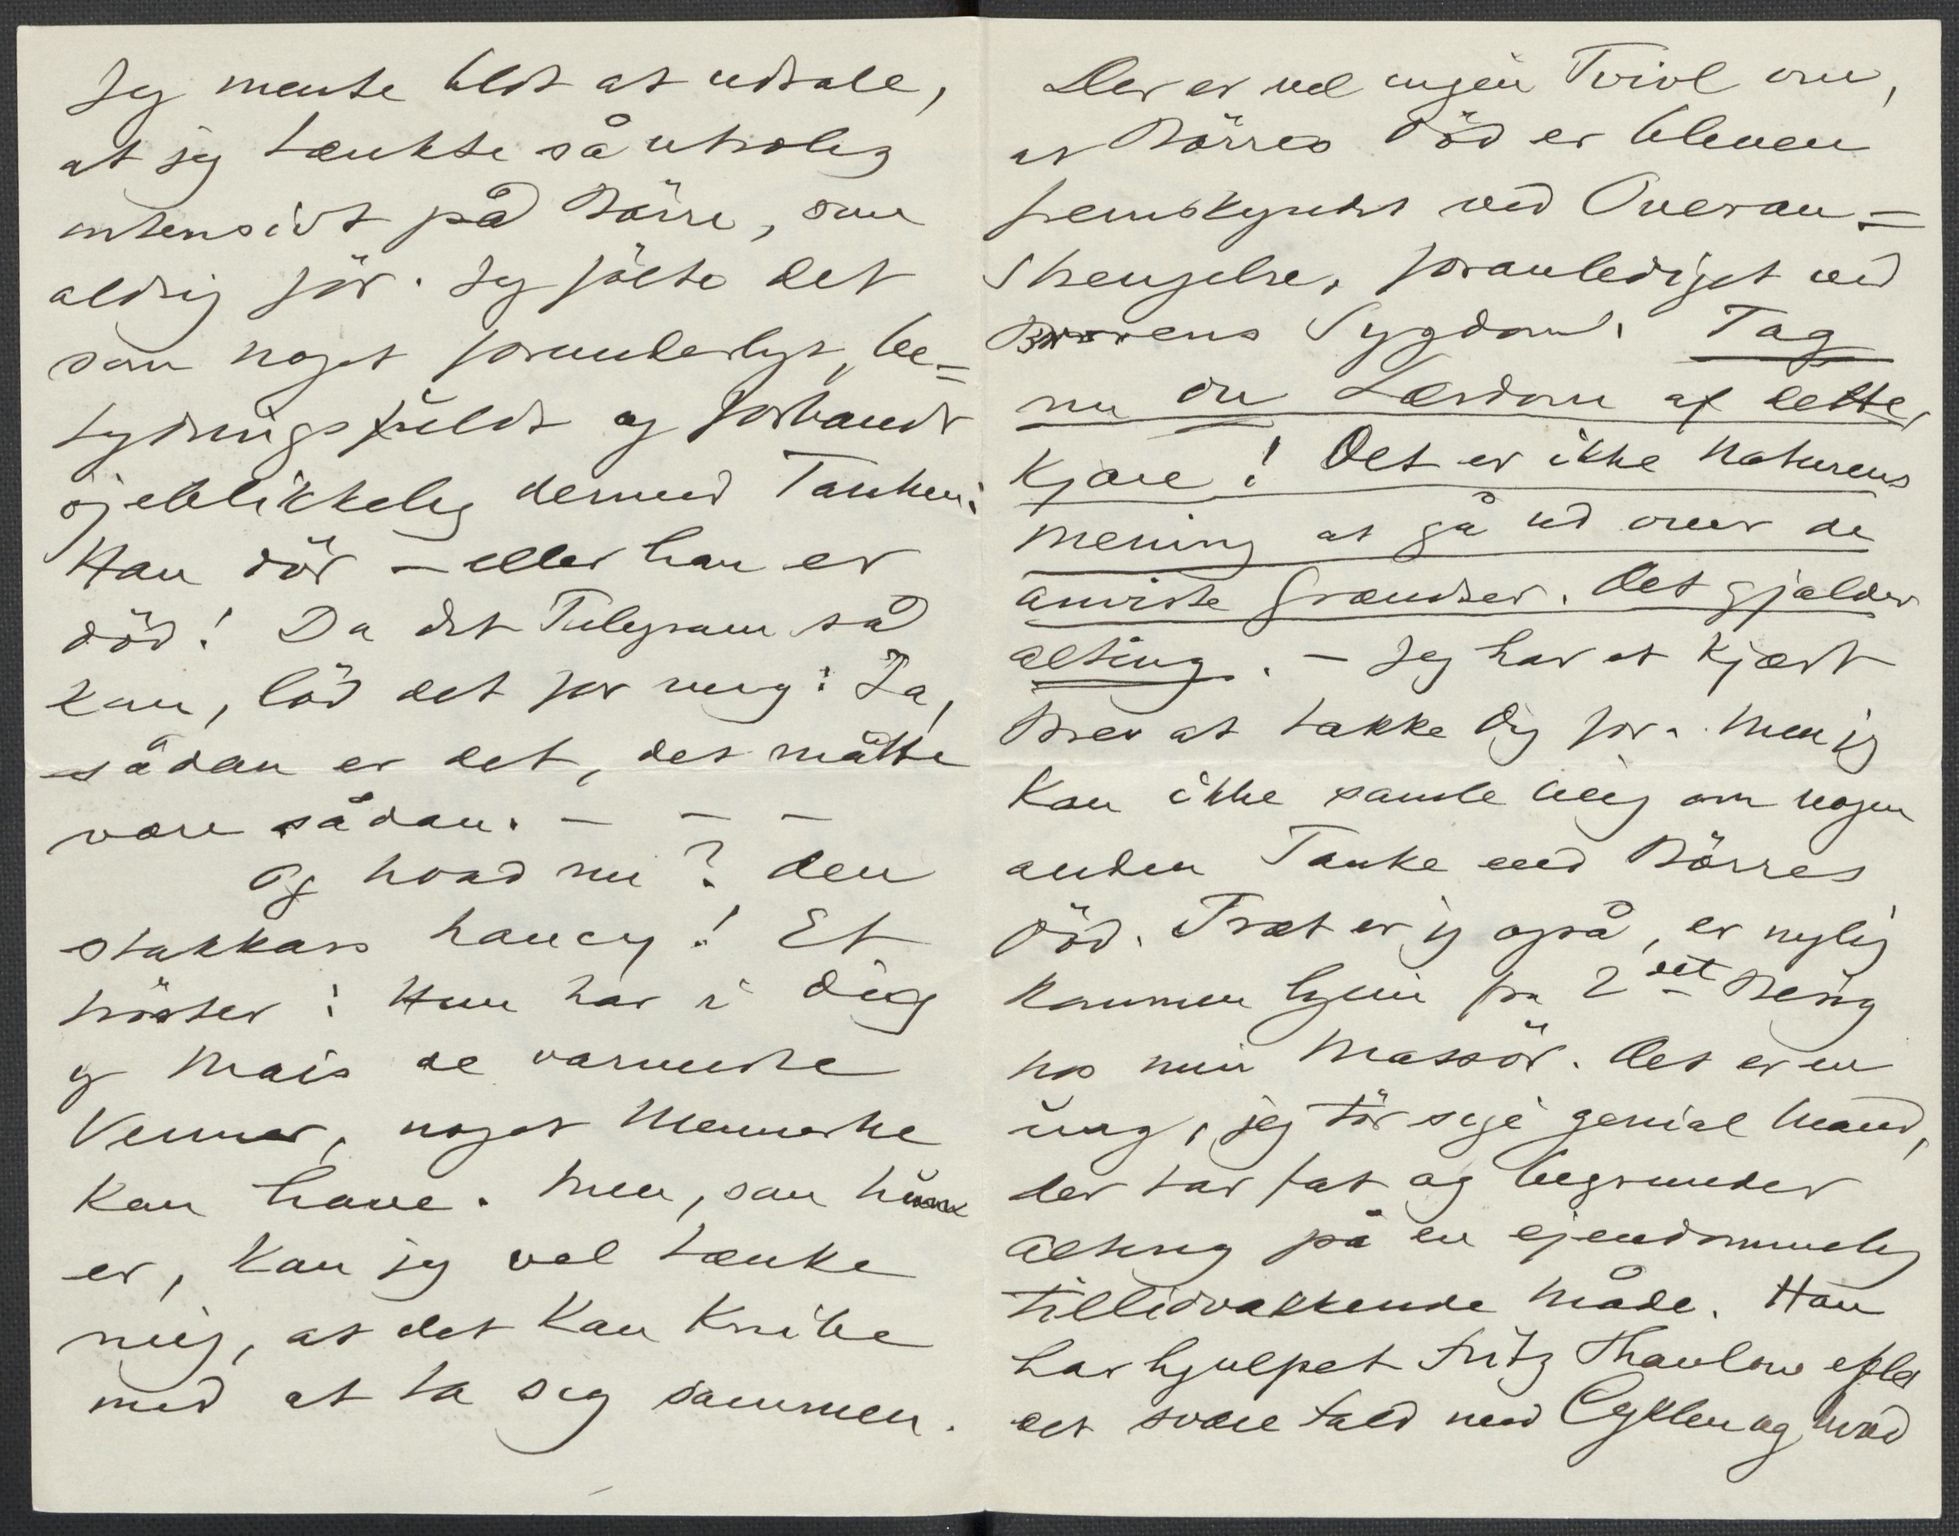 Jeg mente blot at udtale,
at jeg tænkte så utrolig
intensivt på Börre, som
aldrig för. Jeg fölte det
som noget forunderligt, be=
tydningsfuldt og forbandt
öjeblikkelig dermed Tanken:
Han dör – eller han er
död! Da det Telegram så
kom, löd det for mig: Ja,
sådan er det, det måtte
være sådan. – – –
Og hvad nu? Den
stakkars Nancy! Et
tröster: Hun har i Dig
og Mais de varmeste
Venner, noget Menneske
kan have. Men, som hun
er, kan jeg vel tænke
mig, at det kan knibe
med at ta sig sammen.
Der er vel ingen Tvivl om,
at Börres Död er bleven
fremskyndet ved Overan=
strengelse, foranlediget ved
Brorens Sygdom. Tag
nu du Lærdom af dette,
Kjære! Det er ikke Naturens
Mening at gå ud over de
anviste Grændser. Det gjælder
alting. – Jeg har et kjært
Brev at takke Dig for. Men jeg
kan ikke samle mig om nogen
anden Tanke end Börres
Död. Træt er jeg også, er nylig
kommen hjem fra 2det Besög
hos min Massör. Det er en
ung, jeg tör sige genial Mand,
der tar fat og begrunder
alting på en ejendommelig
tillidvækkende Måde. Han
har hjulpet Fritz Thaulow efter
det svære Fald med Cyklen og hvad